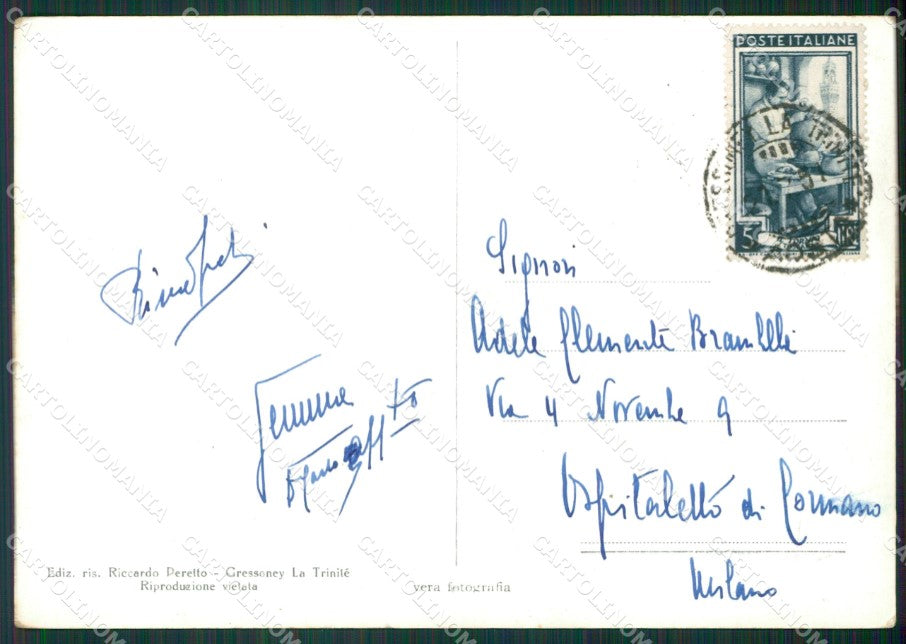 POSTE ITALIANE
LA TRINITE
5
Signori
Adele Clemente Brambilla
Via 4 Novembre 9
Ospitaletto di Cormano
Milano
Gemma
Ediz. ris. Riccardo Peretto - Gressoney La Trinité
Riproduzione vietata
vera fotografia
CARTOLINOMANIA